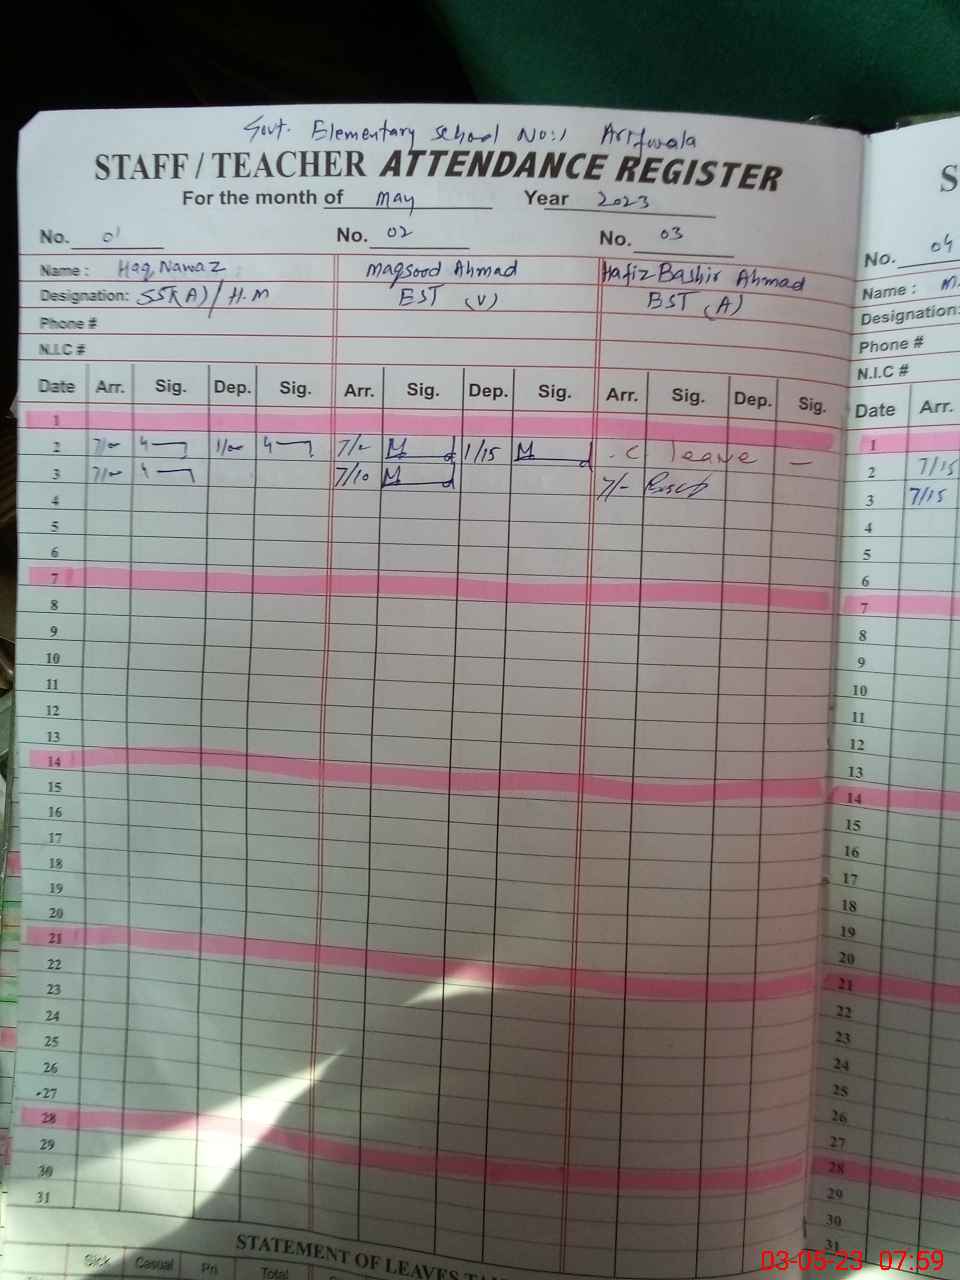 Govt. Elementary school No:1 Arifwala
STAFF / TEACHER ATTENDANCE REGISTER
For the month of May Year 2023
No. 01 No. 02 No. 03
Name: Haq Nawaz Maqsood Ahmad Hafiz Bashir Ahmad
Designation: SST(A)/H.M EST (V) BST (A)
Phone #
N.I.C #
Date Arr. Sig. Dep. Sig. Arr. Sig. Dep. Sig. Arr. Sig. Dep. Sig.
1
2 7/00 1/00 7/- 1/15 C leave —
3 7/00 7/10 7/-
4
5
6
7
8
9
10
11
12
13
14
15
16
17
18
19
20
21
22
23
24
25
26
27
28
29
30
31
STATEMENT OF LEAVES TA
Sick Casual Pri Total
S
No. 04
Name : M.
Designation:
Phone #
N.I.C #
Date Arr.
1
2 7/15
3 7/15
4
5
6
7
8
9
10
11
12
13
14
15
16
17
18
19
20
21
22
23
24
25
26
27
28
29
30
31
03-05-23 07:59